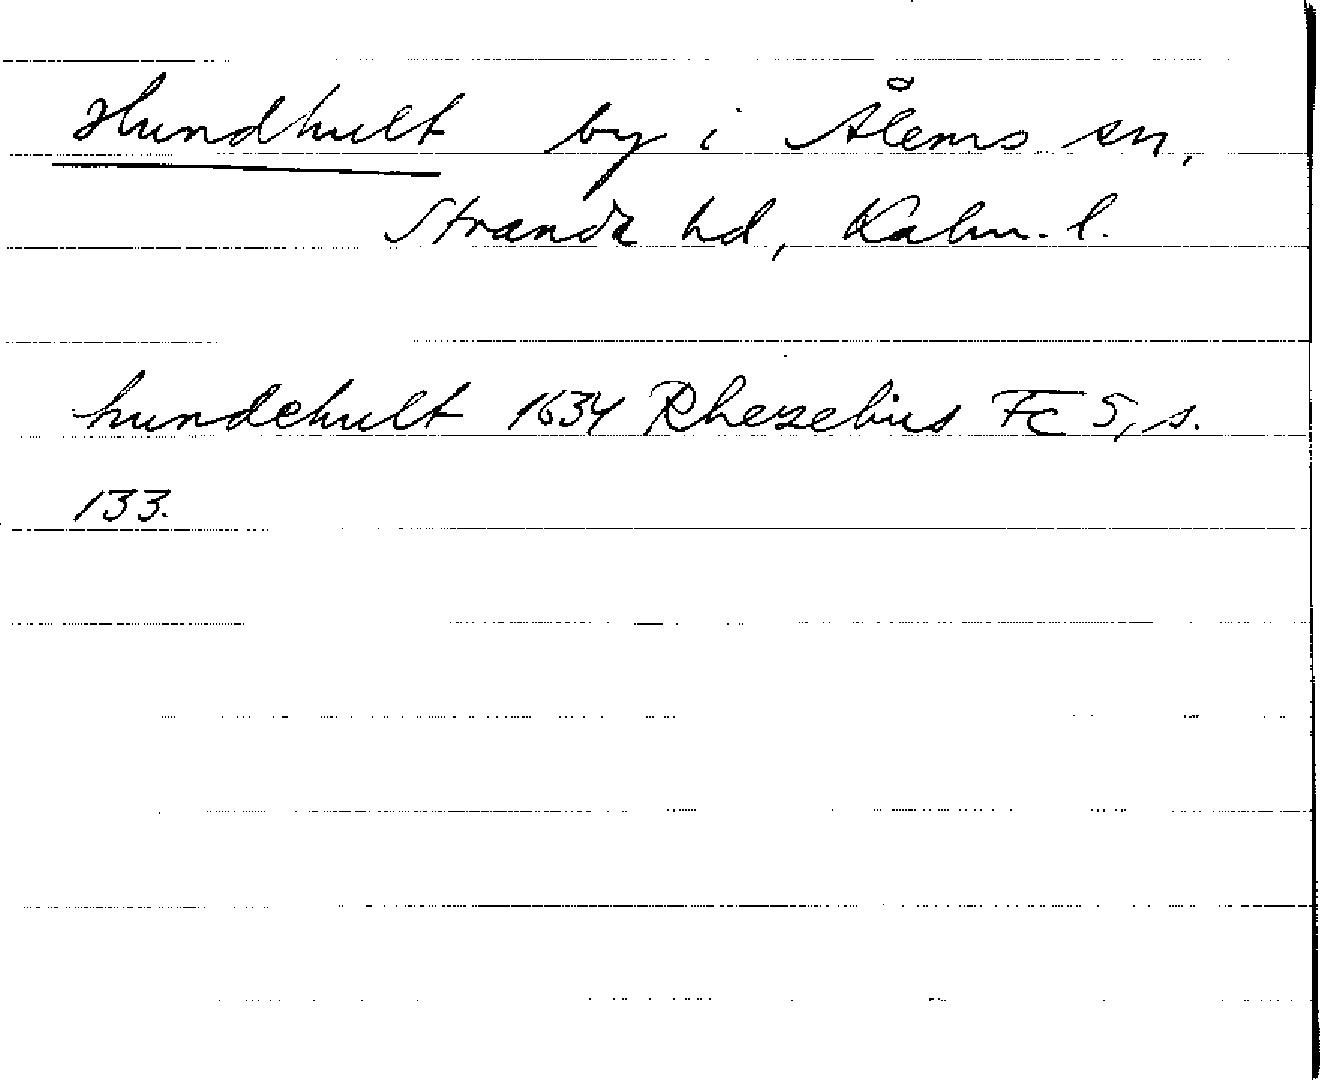 Hundhult by i Ålems sn,
Stranda hd, Kalm. l.
hundehult 1634 Rhezelius Fc 5, s.
133.